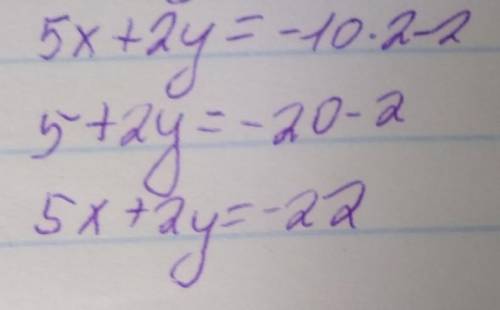 5x+2y=-10·2-2
5+2y=-20-2
5x+2y=-22